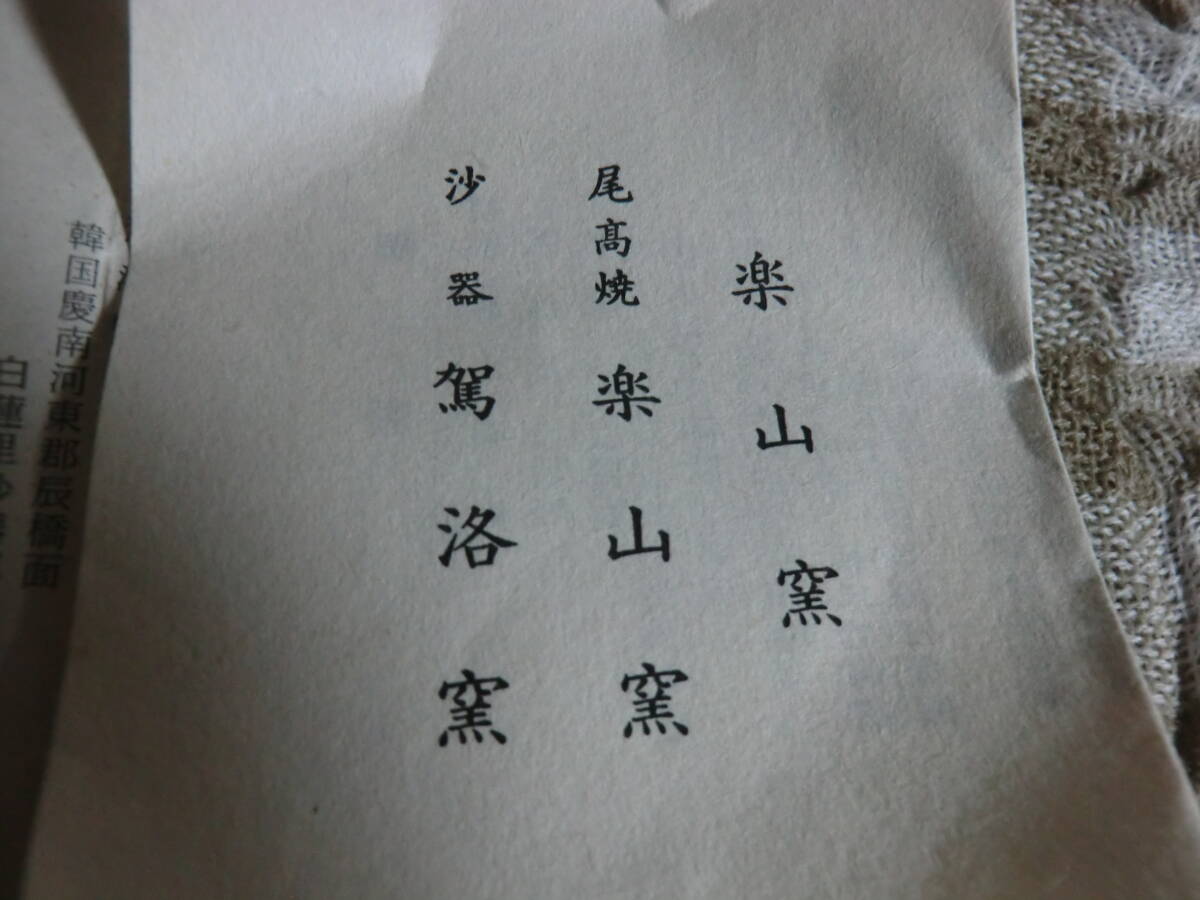 楽山窯
尾髙焼 楽山窯
沙器 駕洛窯
韓国慶南河東郡辰橋面
白蓮里沙器